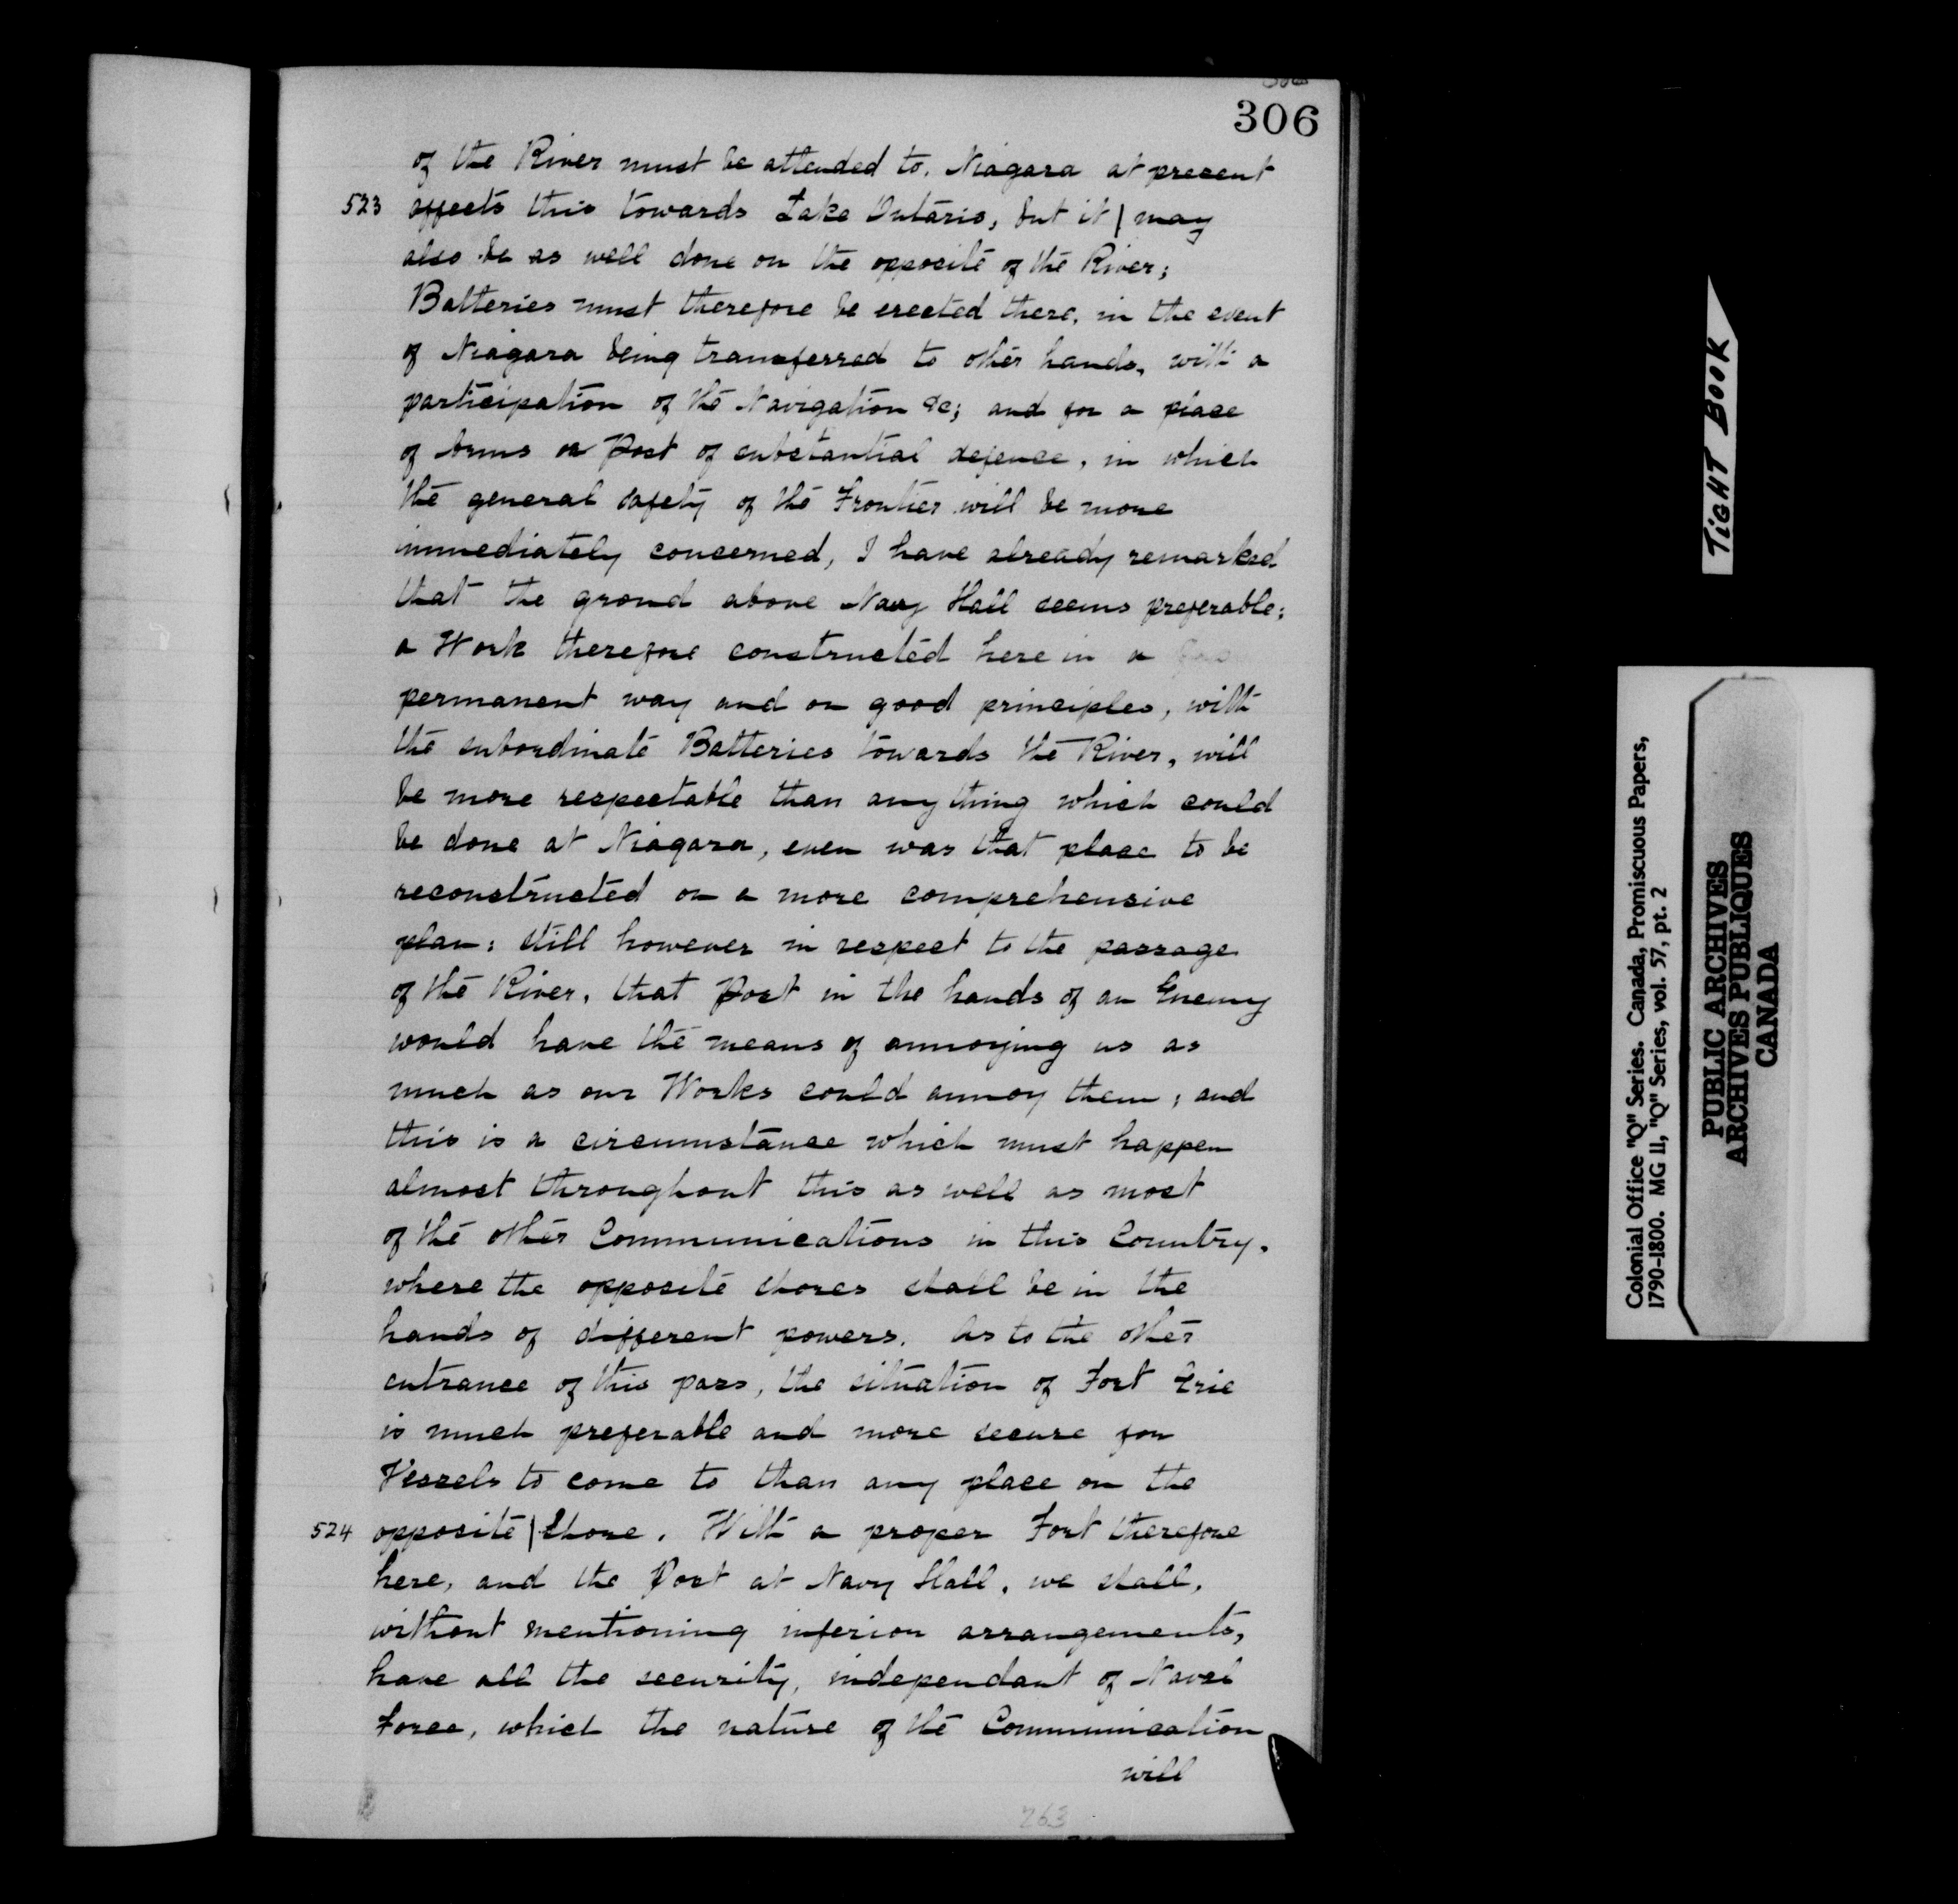 306
of the River must be attended to. Niagara at present
523 affects this towards Lake Ontario, but it | may
also be as well done on the opposite of the River;
Batteries must therefore be erected there, in the event
of Niagara being transferred to other hands, with a
participation of the Navigation &c; and for a place
of Arms or Post of substantial defence, in which
the general safety of the Frontier will be more
immediately concerned, I have already remarked
that the ground above Navy Hall seems preferable;
a Work therefore constructed here in a
permanent way and on good principles, with
the subordinate Batteries towards the River, will
be more respectable than any thing which could
be done at Niagara, even was that place to be
reconstructed on a more comprehensive
plan: still however in respect to the passage
of the River, that Post in the hands of an Enemy
would have the means of annoying us as
much as our Works could annoy them; and
this is a circumstance which must happen
almost throughout this as well as most
of the other Communications in this Country,
where the opposite shores shall be in the
hands of different powers. As to the other
entrance of this pass, the situation of Fort Erie
is much preferable and more secure for
Vessels to come to than any place on the
524 opposite | Shore. With a proper Fort therefore
here, and the Post at Navy Hall, we shall,
without mentioning inferior arrangements,
have all the security, independant of Naval
Force, which the nature of the Communication
will
263
TIGHT BOOK
Colonial Office "Q" Series. Canada, Promiscuous Papers,
1790-1800. MG 11, "Q" Series, vol. 57, pt. 2
PUBLIC ARCHIVES
ARCHIVES PUBLIQUES
CANADA